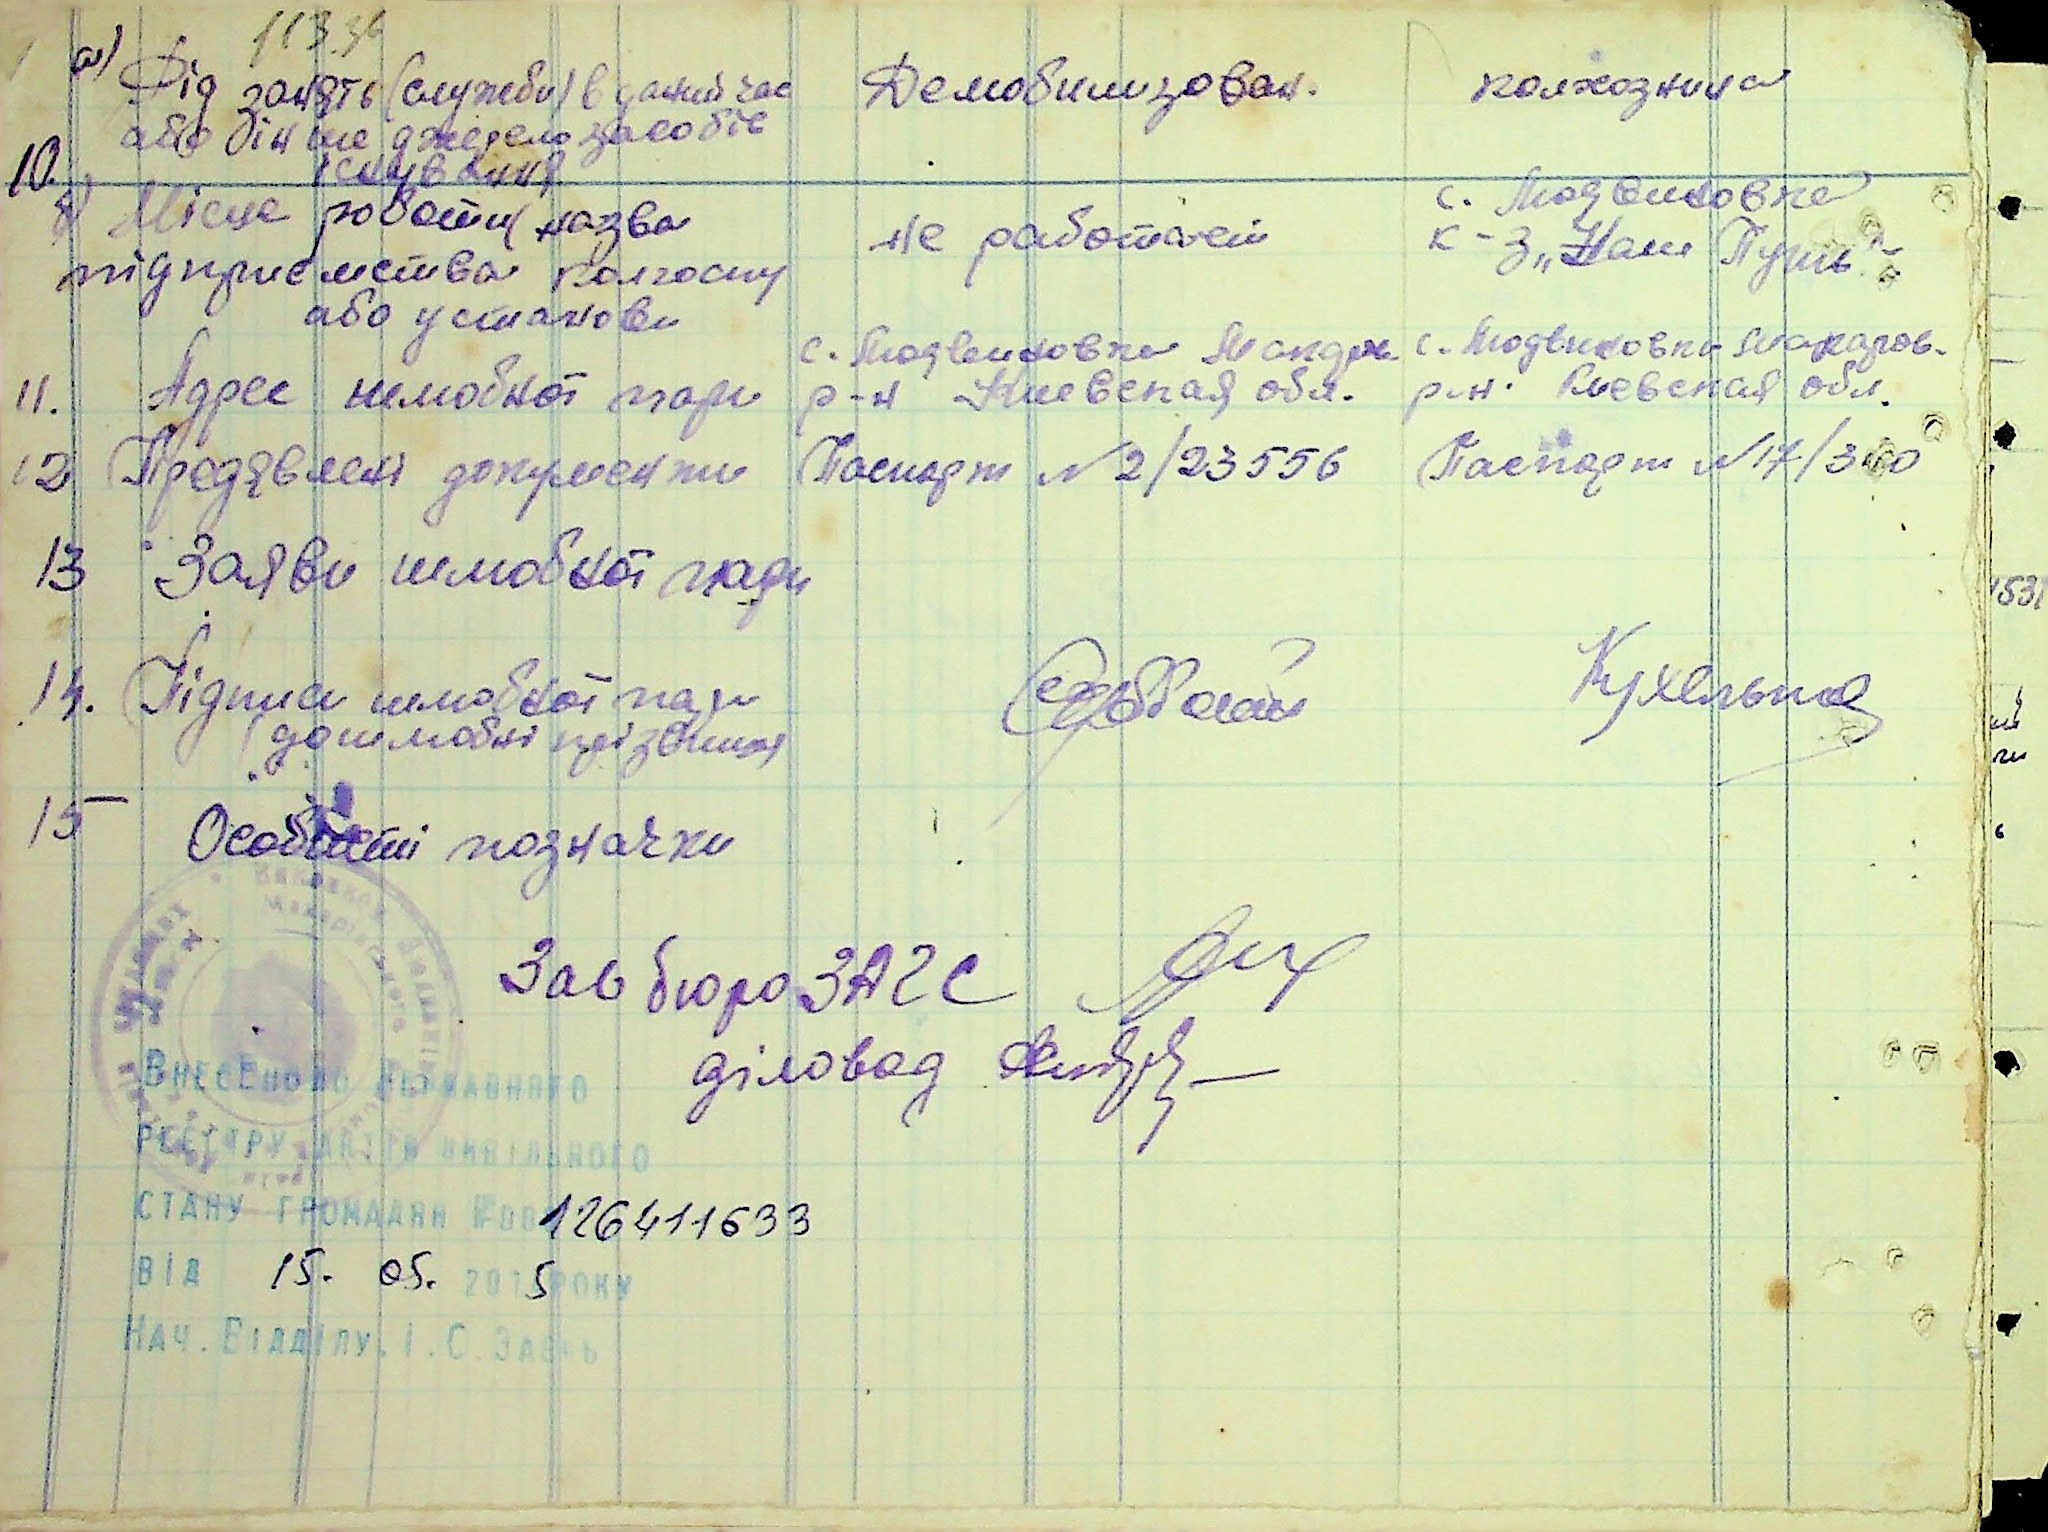 113.36
а) Рід занять (служби) в даний час Демобилизован. колхозница
або інше джерело засобів
10. існування
б) Місце роботи, назва не работает с. Людвиновка
підприємства колгоспу к-з „Наш Путь"
або установи
11. Адрес шлюбної пари с. Людвиновка Макаров. р-н Киевская обл. с. Людвиновка Макаров. р-н. Киевская обл.
12 Предявлені документи Паспорт N 2/23556 Паспорт N 17/
13 Заяви шлюбної пари
14. Підписи шлюбної пари Кухельна
(дошлюбні прізвища)
15 Особисті позначки
Зав бюро ЗАГС
діловод
Внесено до Державного
реєстру актів цивільного
стану громадян №00126411633
від 15. 05. 2015 року
Нач. Відділу І.С.